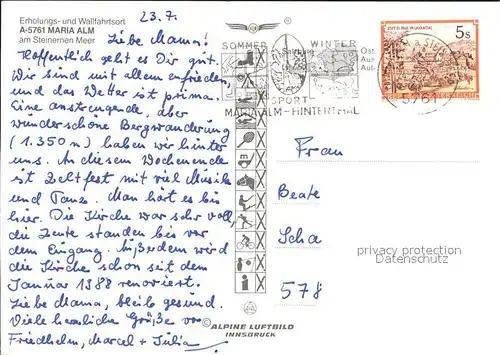 Erholungs- und Wallfahrtsort
A-5761 MARIA ALM
am Steinernen Meer
23.7.
Liebe Mama!
Hoffentlich geht es Dir gut.
Wir sind mit allem zufrieden,
und das Wetter ist prima.
Eine anstrengende, aber
wunderschöne Bergwanderung
(1.350 m) haben wir hinter
uns. An diesem Wochenende
ist Zeltfest mit viel Musik
und Tanz. Man hört es bis
hier. Die Kirche war sehr voll,
die Leute standen bis vor
dem Eingang. Außerdem wird
die Kirche schon seit dem
Januar 1988 renoviert.
Liebe Mama, bleib gesund.
Viele herzliche Grüße von
Friedhelm, Marcel + Julia
SOMMER WINTER
Salzburg
SPORT
MARIA ALM-HINTERTHAL
STIFT ST. PAUL IM LAVANTTAL
5 S
5761
Frau
Beate
Scha
578
privacy protection
Datenschutz
© ALPINE LUFTBILD
INNSBRUCK